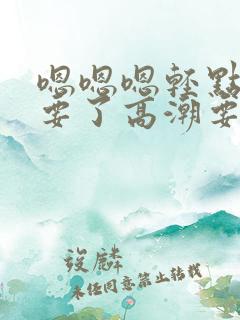 嗯嗯嗯轻點
要了高潮要
筱麟
未经同意禁止转载